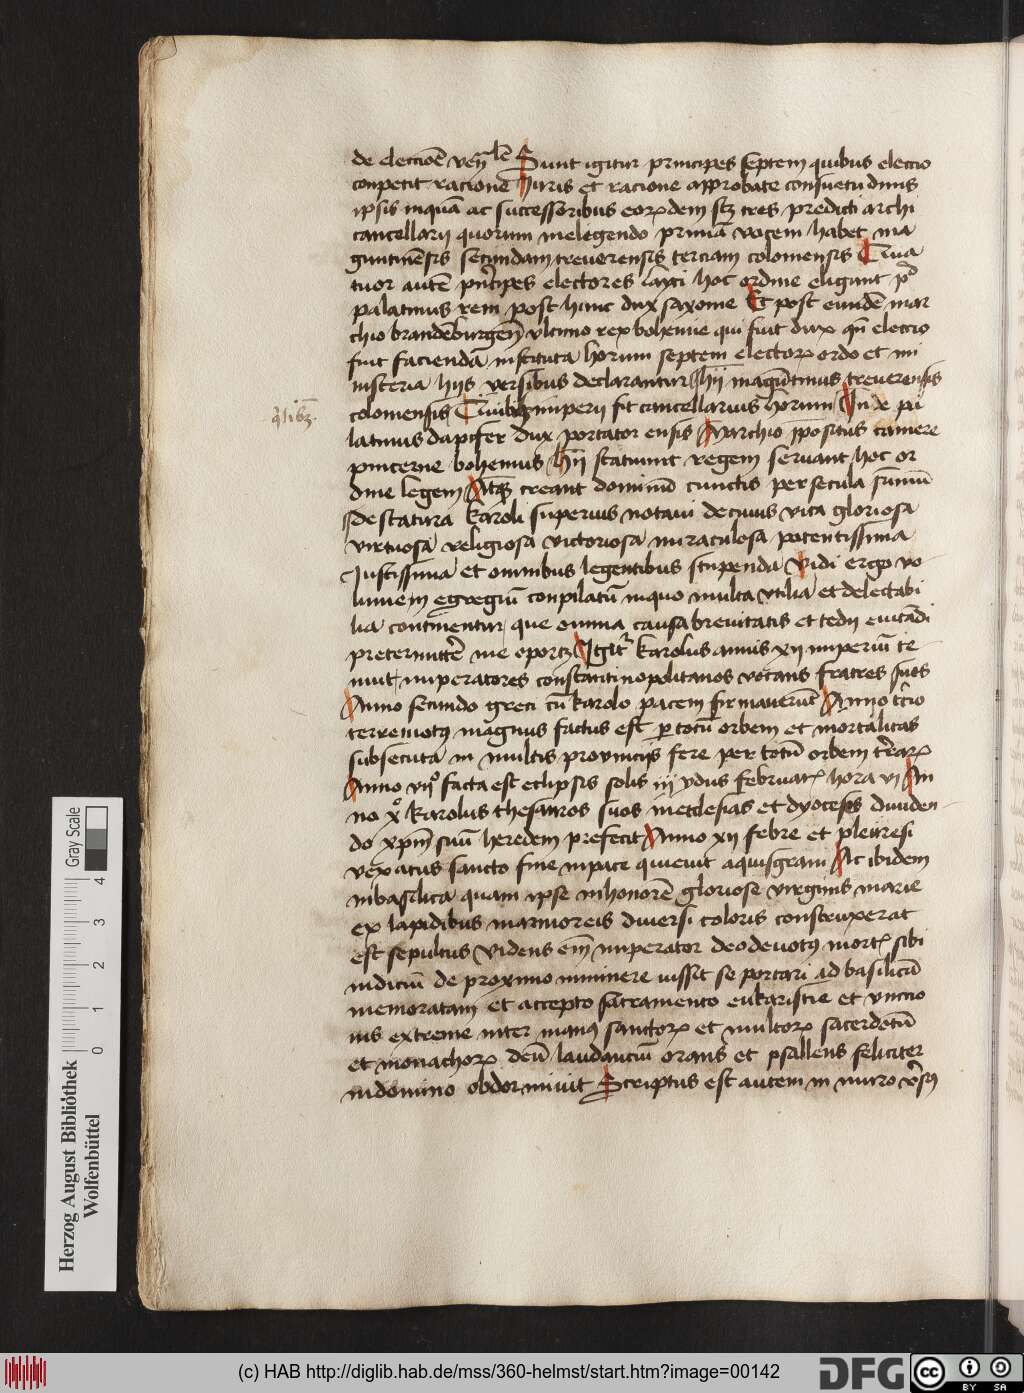 de eleccioē veñ lē Sunt igitur principes septem quibus eleccio
conpetit racione Juris et racione approbate consuetudinis
ipsis inquā ac successoribus eorꝝdem scꝫ tres predicti archi
cancellarij quorum in elegendo primā vocem habet ma
guntinēsis secundam treuerensis terciam coloniensis Qua
tuor autē prīcipes electores layci hoc ordine eligunt pͦ
palatinus reni post hunc dux saxonie Et post eundē mar
chio brandēburgen̄ vltimo rex bohemie qui fuit dux qn̄ eleccio
fuit facienda instituta horum septem electorꝝ ordo et mi
nisteria hijs versibus declarantur hij magūtinus treuerensis
coloniensis Quilibꝫ imperij fit cancellarius horum Inde pa
q̄libꝫ.
latinus dapifer dux portator ensis Marchio ꝓpositus camere
pincerne bohemus hij statuunt regem seruant hoc or
dine legem Atqꝫ creant dominū cunctis per secula summū
de statura karoli superius notaui de cuius vita gloriosa
virtuosa religiosa victoriosa miraculosa potentissima
Justissima et omnibus legentibus stupenda Vidi ergo vo
lumem egregiū conpilatū in quo multa vtilia et delectabi
lia continentur que omnia causa breuitatis et tedij euitādi
pretermittē̄ me oportꝫ Igitͬ karolus annis xij imperiū te
nuit imperatores constantinopolitanos vocans fratres suos
Anno secundo greci cū karolo pacem firmauerūt Anno tͨcio
terremotꝰ magnus factus est ꝑ totū orbem et mortalitas
subsecuta in multis prouincijs fere per totū orbem trārꝝ
Anno vijͦ facta est eclipsis solis iij ydus februarꝝ hora vi An
no xͦ karolus thesauros suos in ecclesias et dyoceses diuiden
do xpm̄ suū heredem prefecit Anno xij febre et pleuresi
vexatus sancto fine in pace quieuit aquisgrani Ac ibidem
in basilica quam ipse in honorē gloriose virginis marie
ex lapidibus marmoreis diuersi coloris construxerat
est sepultus Videns em̄ imperator deo deuotꝰ mortꝭ sibi
indiciū de proximo iminere iussit se portari ad basilicā
memoratam et accepto sacramento eukaristie et vnccio
nis extreme inter manꝰ sanctorꝝ et multorꝝ sacerdotū
et monachorꝝ deū laudanciū orans et psallens feliciter
in domino obdormiuit Scriptus est autem in muro vͤrsꝰ
Herzog August Bibliothek
Wolfenbüttel
0 1 2 3 4
Gray Scale
(c) HAB http://diglib.hab.de/mss/360-helmst/start.htm?image=00142
DFG
cc BY SA